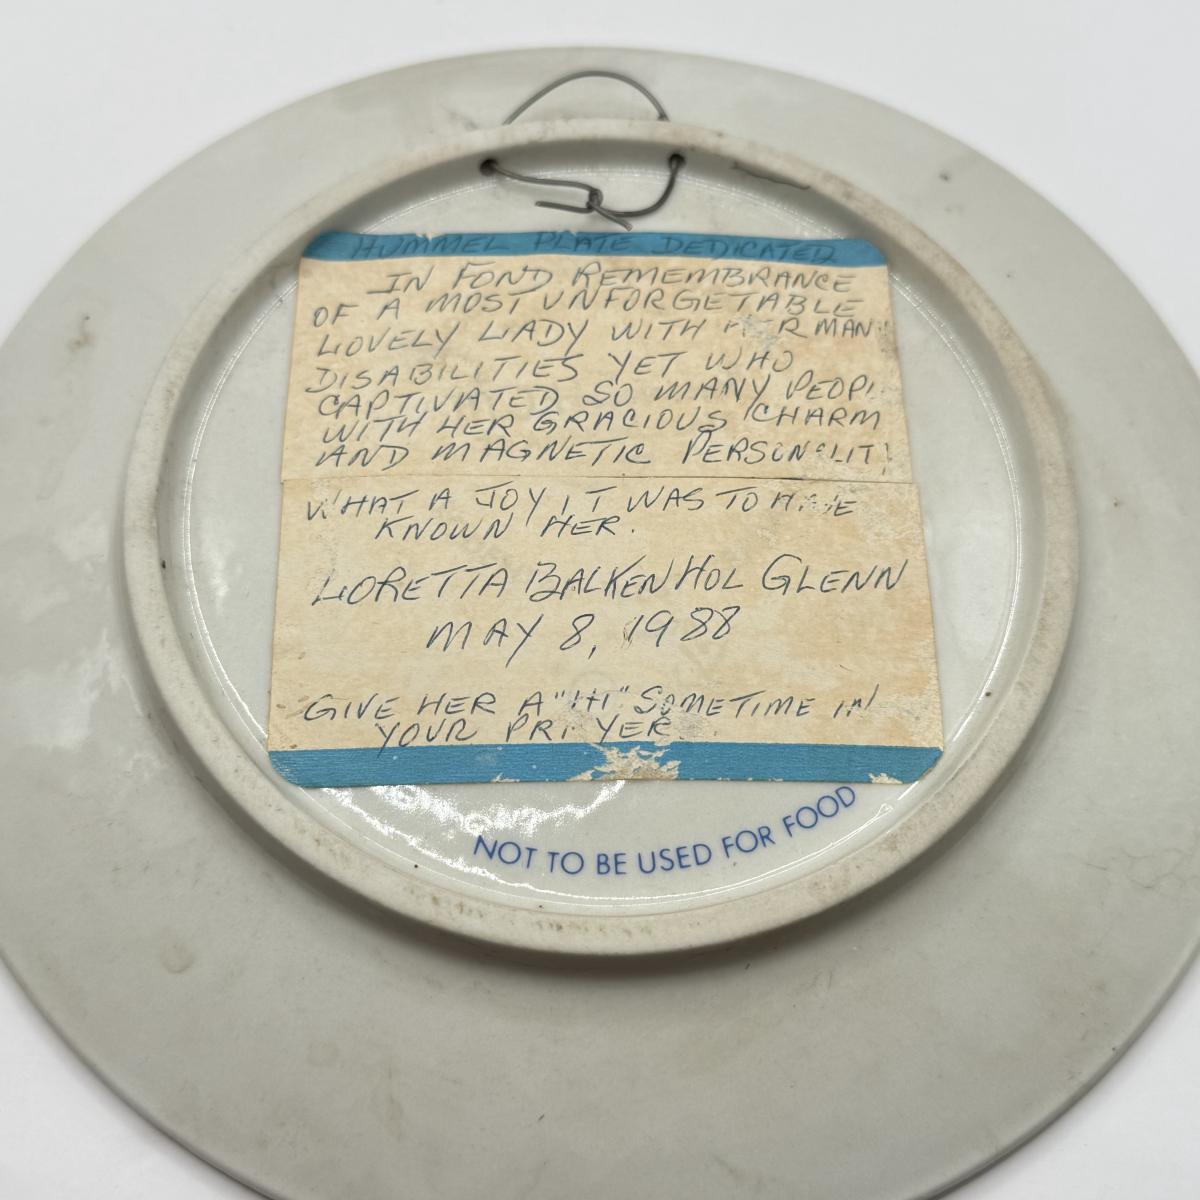 HUMMEL PLATE DEDICATED
IN FOND REMEMBRANCE
OF A MOST UNFORGETABLE
LOVELY LADY WITH HER MANY
DISABILITIES YET WHO
CAPTIVATED SO MANY PEOPL
WITH HER GRACIOUS CHARM
AND MAGNETIC PERSONALITY
WHAT A JOY IT WAS TO HAVE
KNOWN HER.
LORETTA BALKENHOL GLENN
MAY 8, 1988
GIVE HER A "HI" SOMETIME IN
YOUR PRAYER.
NOT TO BE USED FOR FOOD